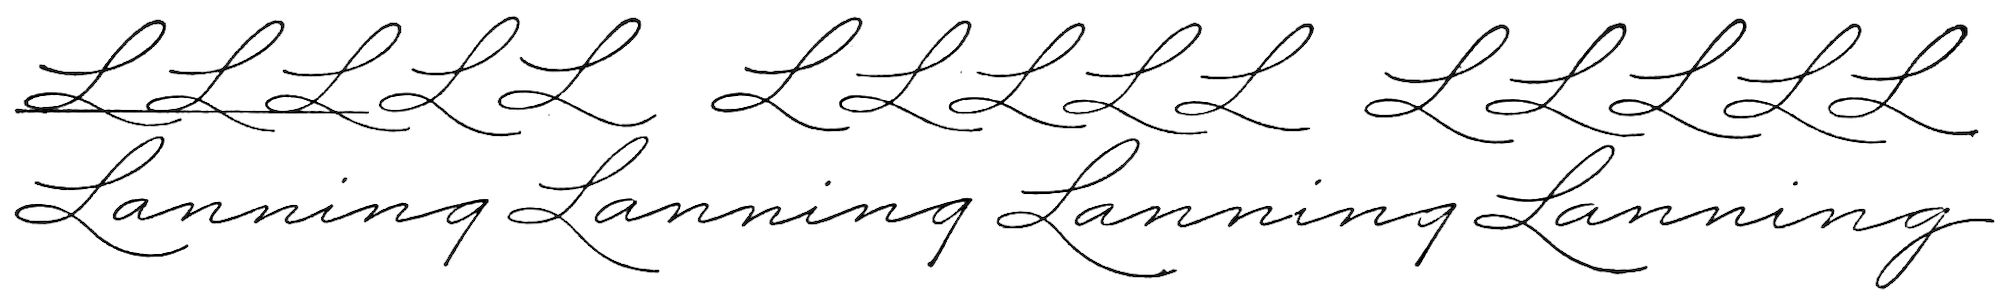 L L L L L L L L L L L L L L L
Lanning Lanning Lanning Lanning